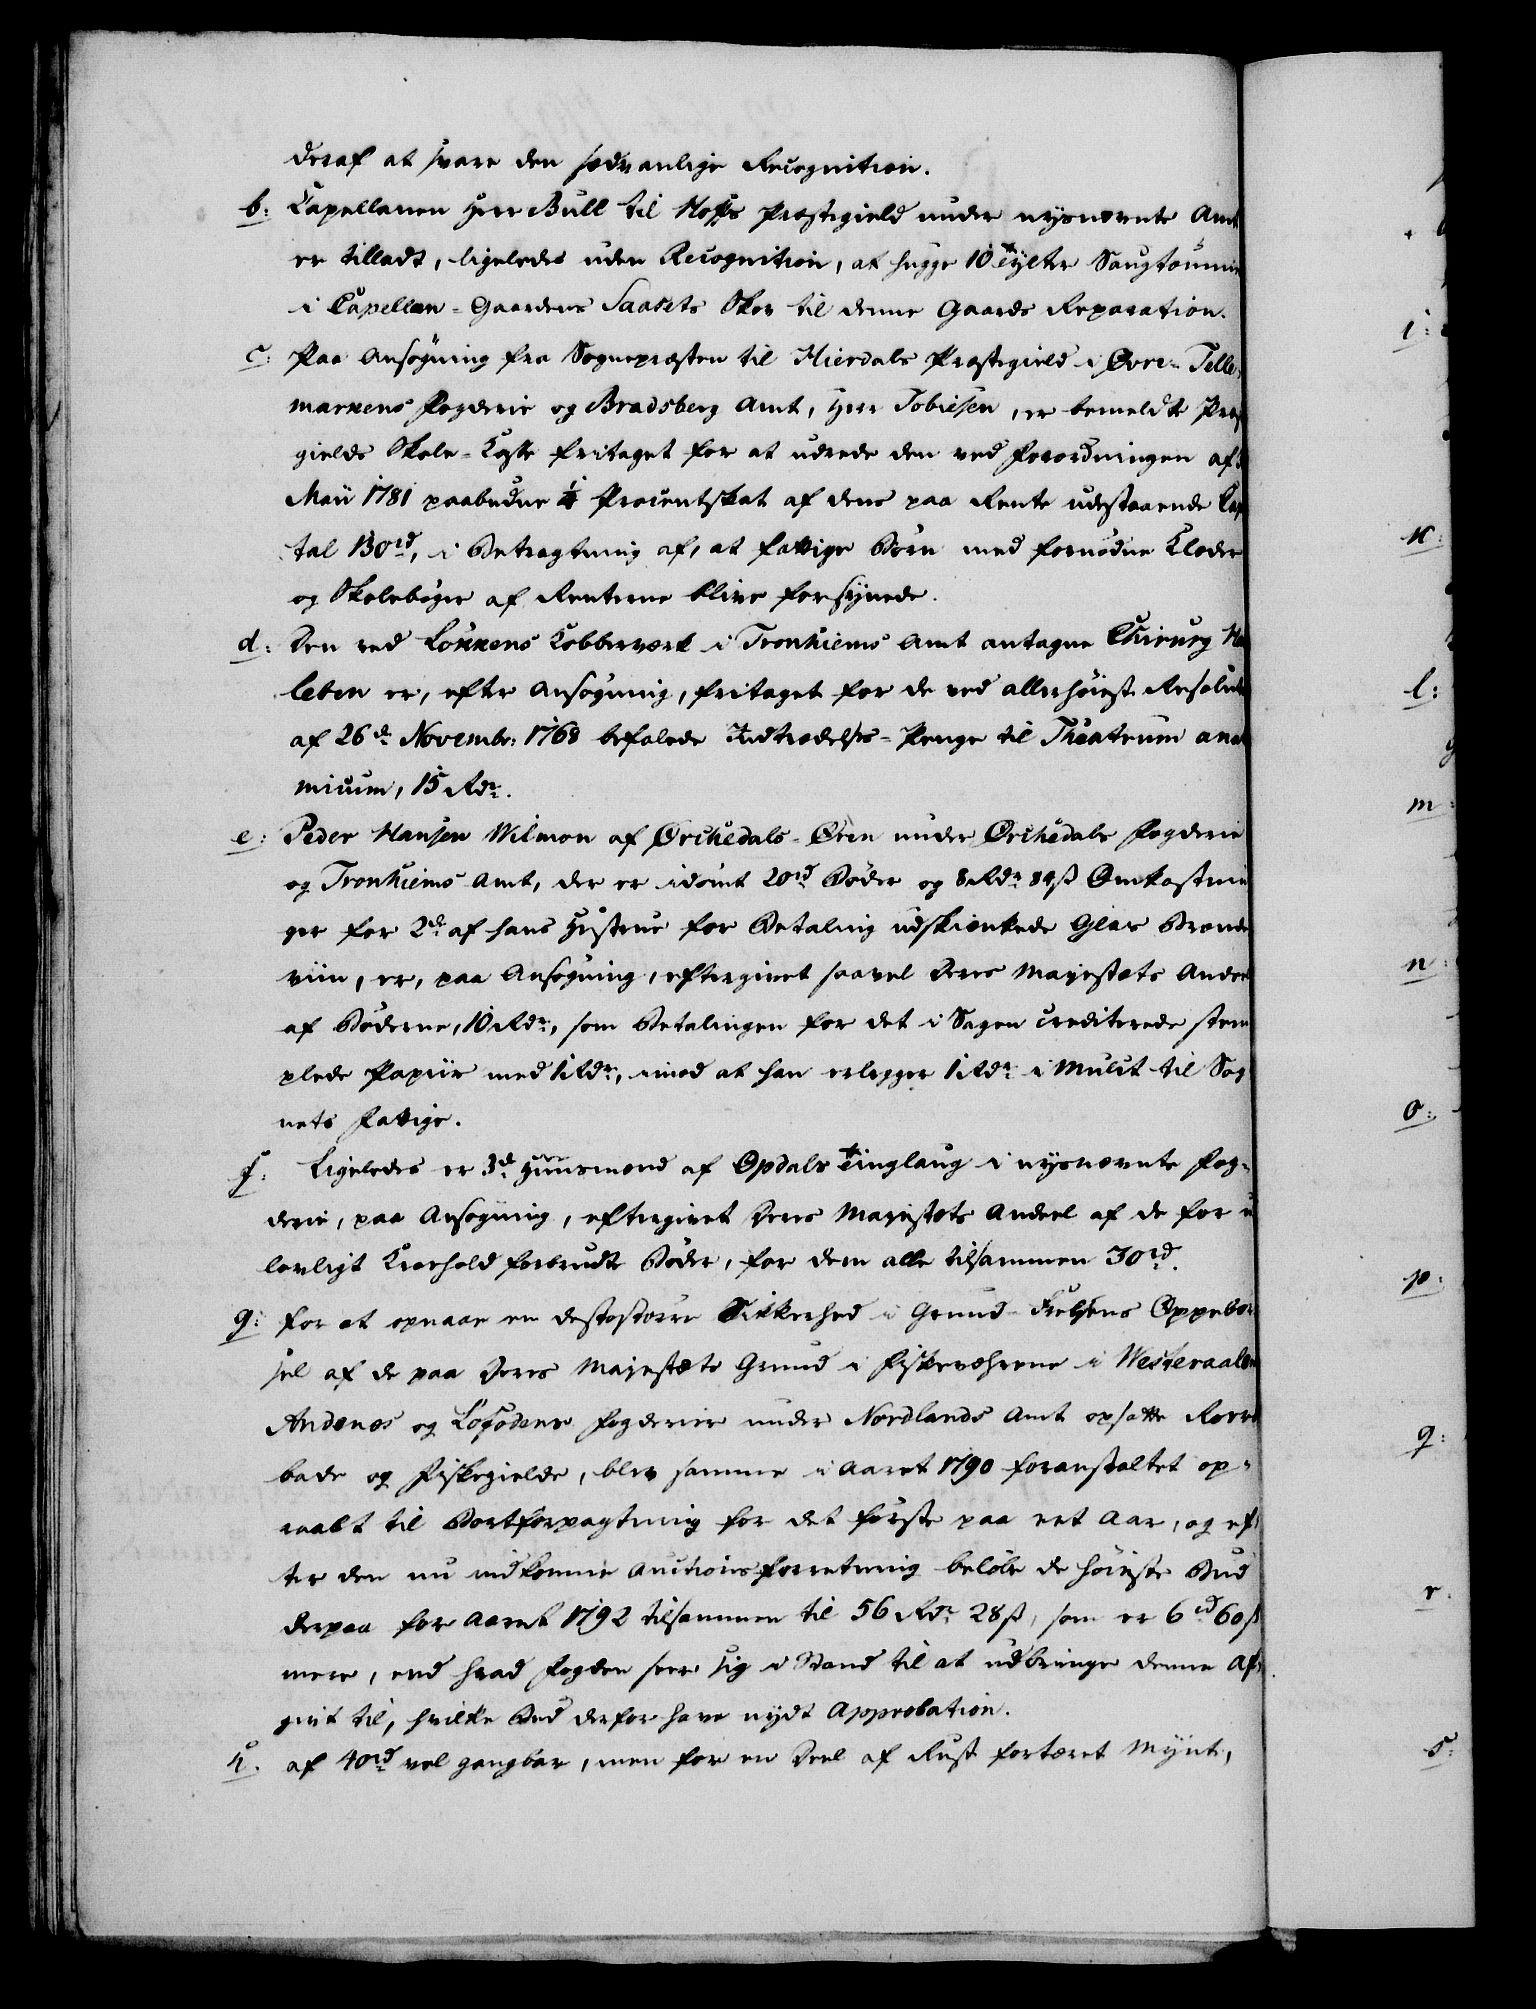 deraf at svare den sædvanlige Recognition.
b: Capellanen Herr Bull til Hoffs Præstegield under nysnævnte Amt
er tilladt, ligeledes uden Recognition, at hugge 10 Tylter Saugtømmer
i Capellan-Gaardens Saasets Skov til denne Gaards Reparation.
c: Paa Ansøgning fra Sognepræsten til Hierdals Præstegield i Øvre-Telle-
markens Fogderie og Bradsberg Amt, Herr Tobiesen, er bemeldte Præste
gields Skole-Casse fritaget for at udrede den ved Forordningen af
Maii 1781 paabudne 1/4 Procentskat af dens paa Rente udestaaende Capi
tal 130 rd, i Betragtning af, at fattige Børn med fornødne Klæder
og Skolebøger af Renterne blive forsynede.
d: Den ved Løkkens Kobberværk i Tronhiems Amt antagne Chirurg
leben er, efter Ansøgning, fritaget for de ved allerhøieste Resolution
af 26de Novembr: 1768 befalede Indtrædelses-Penge til Theatrum anato
micum, 15 Rdr.
e: Peder Hansen Wilmon af Ørchedals-Øren under Ørchedals Fogderie
og Tronhiems Amt, der er idømt 20 rd Bøder og 8 Rdr 84 ß Omkostnin
ger for 2de af hans Hustrue for Betaling udskienkede Glas Brænde
viin, er, paa Ansøgning, eftergivet saavel Deres Majestæts Andeel
af Bøderne, 10 Rdr, som Betalingen for det i Sagen crediterede stem
plede Papiir med 1 Rdr, imod at han erlegger 1 Rdr i Mulct til Sog
nets Fattige.
f: Ligeledes er 3de Huusmænd af Opdals Tinglaug i nysnævnte Fog-
derie, paa Ansøgning, eftergivet Deres Majestæts Andeel af de for u
lovligt Kroehold forbrudte Bøder, for dem alle tilsammen 30 rd.
g: For at opnaae en destostørre Sikkerhed i Grund-Leiens Oppebør
sel af de paa Deres Majestæts Grund i Fiskeværene i Westeraalen
Andenæs og Lofodens Fogderier under Nordlands Amt opsatte Roer
bode og Fiskegielde, blev samme i Aaret 1790 foranstaltet op-
raabt til Bortforpagtning for det første paa eet Aar, og ef-
ter den nu indkomne Auctionsforretning beløbe de høieste Bud
derpaa for Aaret 1792 tilsammen til 56 Rdr 28 ß, som er 6 rd 60 ß
mere, end hvad Fogden seer sig i Stand til at udbringe denne Af-
givt til, hvilke Bud derfor have nydt Approbation.
h. af 40 rd vel gangbar, men for en Deel af Rust fortæret Mynt,
i:
k:
l:
m:
n:
o:
p:
q:
r.
s: